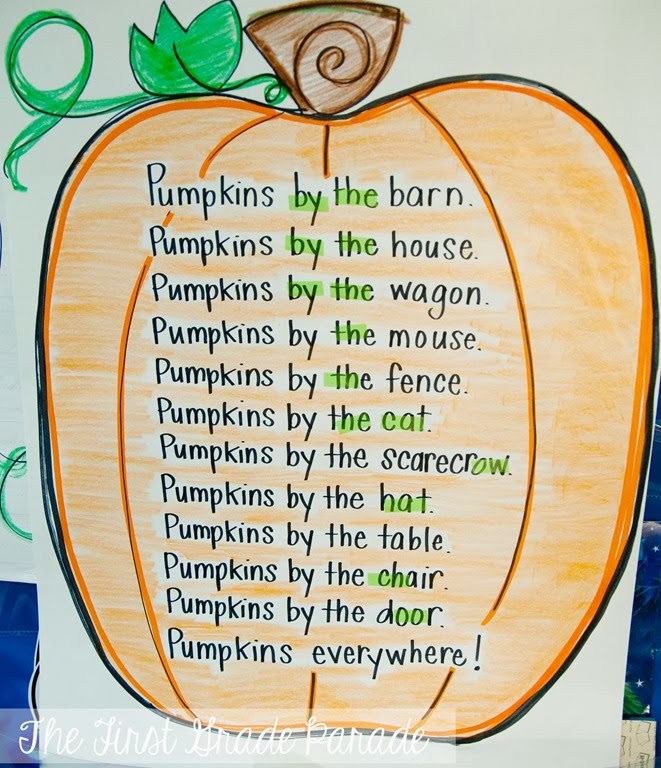 Pumpkins by the barn.
Pumpkins by the house.
Pumpkins by the wagon.
Pumpkins by the mouse.
Pumpkins by the fence.
Pumpkins by the cat.
Pumpkins by the scarecrow.
Pumpkins by the hat.
Pumpkins by the table.
Pumpkins by the chair.
Pumpkins by the door.
Pumpkins everywhere!
The First Grade Parade